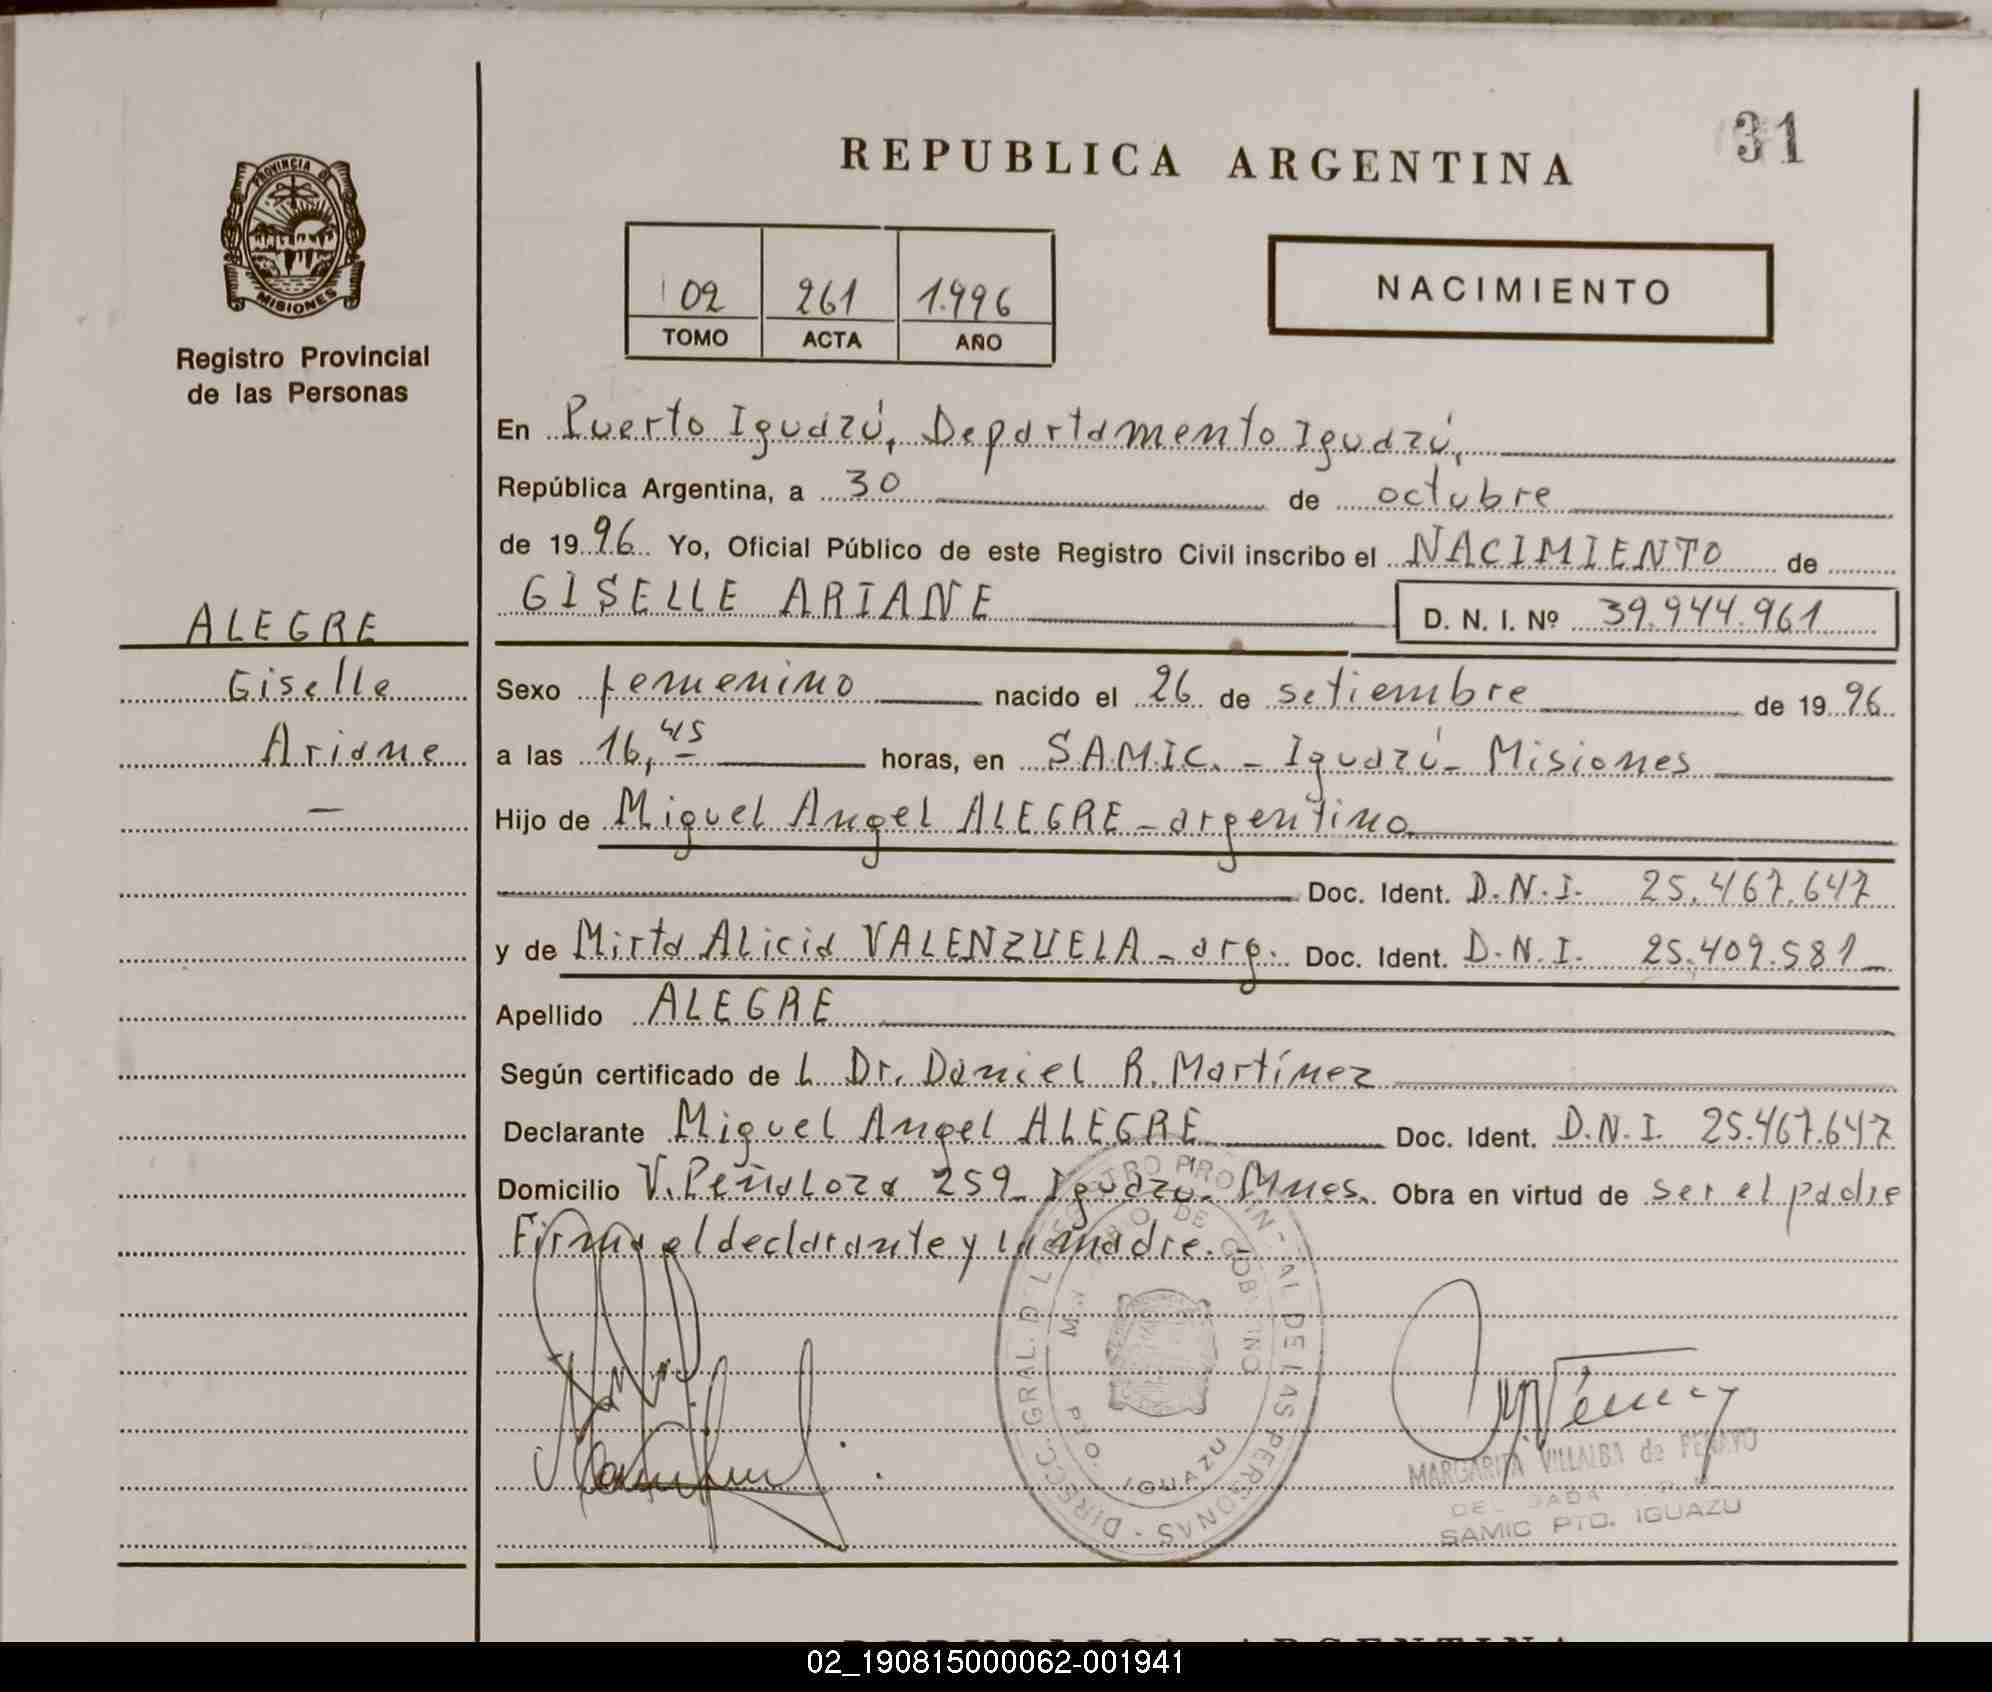 REPUBLICA ARGENTINA
31
PROVINCIA DE
MISIONES
Registro Provincial
de las Personas
02 261 1.996
TOMO ACTA AÑO
NACIMIENTO
En Puerto Iguazú, Departamento Iguazú,
República Argentina, a 30 de octubre
de 1996 Yo, Oficial Público de este Registro Civil inscribo el NACIMIENTO de
GISELLE ARIANE D. N. I. Nº 39.944.961
ALEGRE
Giselle
Ariane
Sexo femenino nacido el 26 de setiembre de 1996
a las 16,45 horas, en S.A.M.I.C. - Iguazú - Misiones
Hijo de Miguel Angel ALEGRE - argentino
Doc. Ident. D.N.I. 25.467.647
y de Mirta Alicia VALENZUELA - arg. Doc. Ident. D.N.I. 25.409.581
Apellido ALEGRE
Según certificado de L Dr. Daniel R. Martínez
Declarante Miguel Angel ALEGRE Doc. Ident. D.N.I. 25.467.647
Domicilio V. Peñaloza 259 Iguazú. Mnes. Obra en virtud de ser el padre
Firma el declarante y la madre. -
DIRECC. GRAL. DEL REGISTRO PROVINCIAL DE LAS PERSONAS
DE GOBIERNO
PTO. IGUAZU
MARGARITA VILLALBA de
SAMIC PTO. IGUAZU
REPUBLICA ARGENTINA
02_190815000062-001941